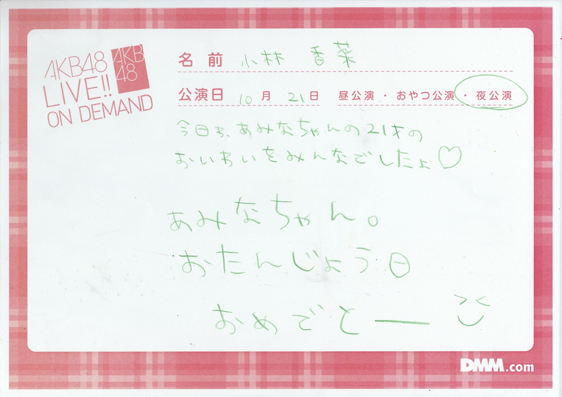 AKB48
LIVE!!
ON DEMAND
AKB
48
名前 小林 香菜
公演日 10月 21日 昼公演・おやつ公演・夜公演
今日は、あみなちゃんの21才の
おいわいをみんなでしたよ♡
あみなちゃん。
おたんじょう日
おめでとー
DMM.com